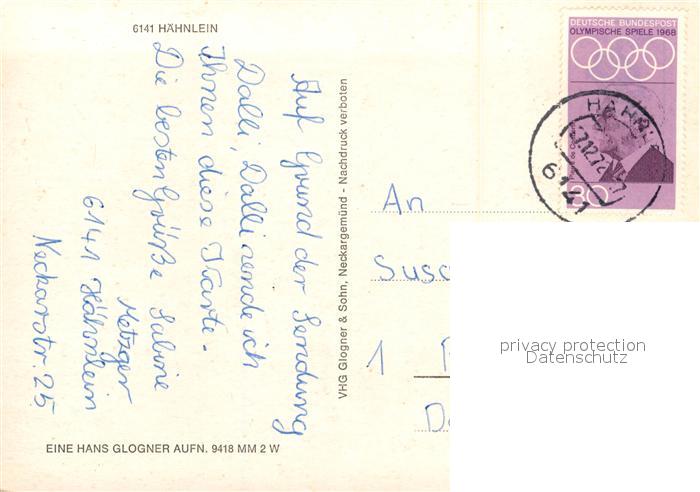 6141 HÄHNLEIN
Auf Grund der Sendung
Dalli, Dalli sende ich
Ihnen diese Karte.
Die besten Grüße Sabine
Metzger
6141 Hähnlein
Neckarstr. 25
VHG Glogner & Sohn, Neckargemünd - Nachdruck verboten
EINE HANS GLOGNER AUFN. 9418 MM 2 W
DEUTSCHE BUNDESPOST
OLYMPISCHE SPIELE 1968
30
HÄHNL
6141
An
Susa
1
privacy protection
Datenschutz